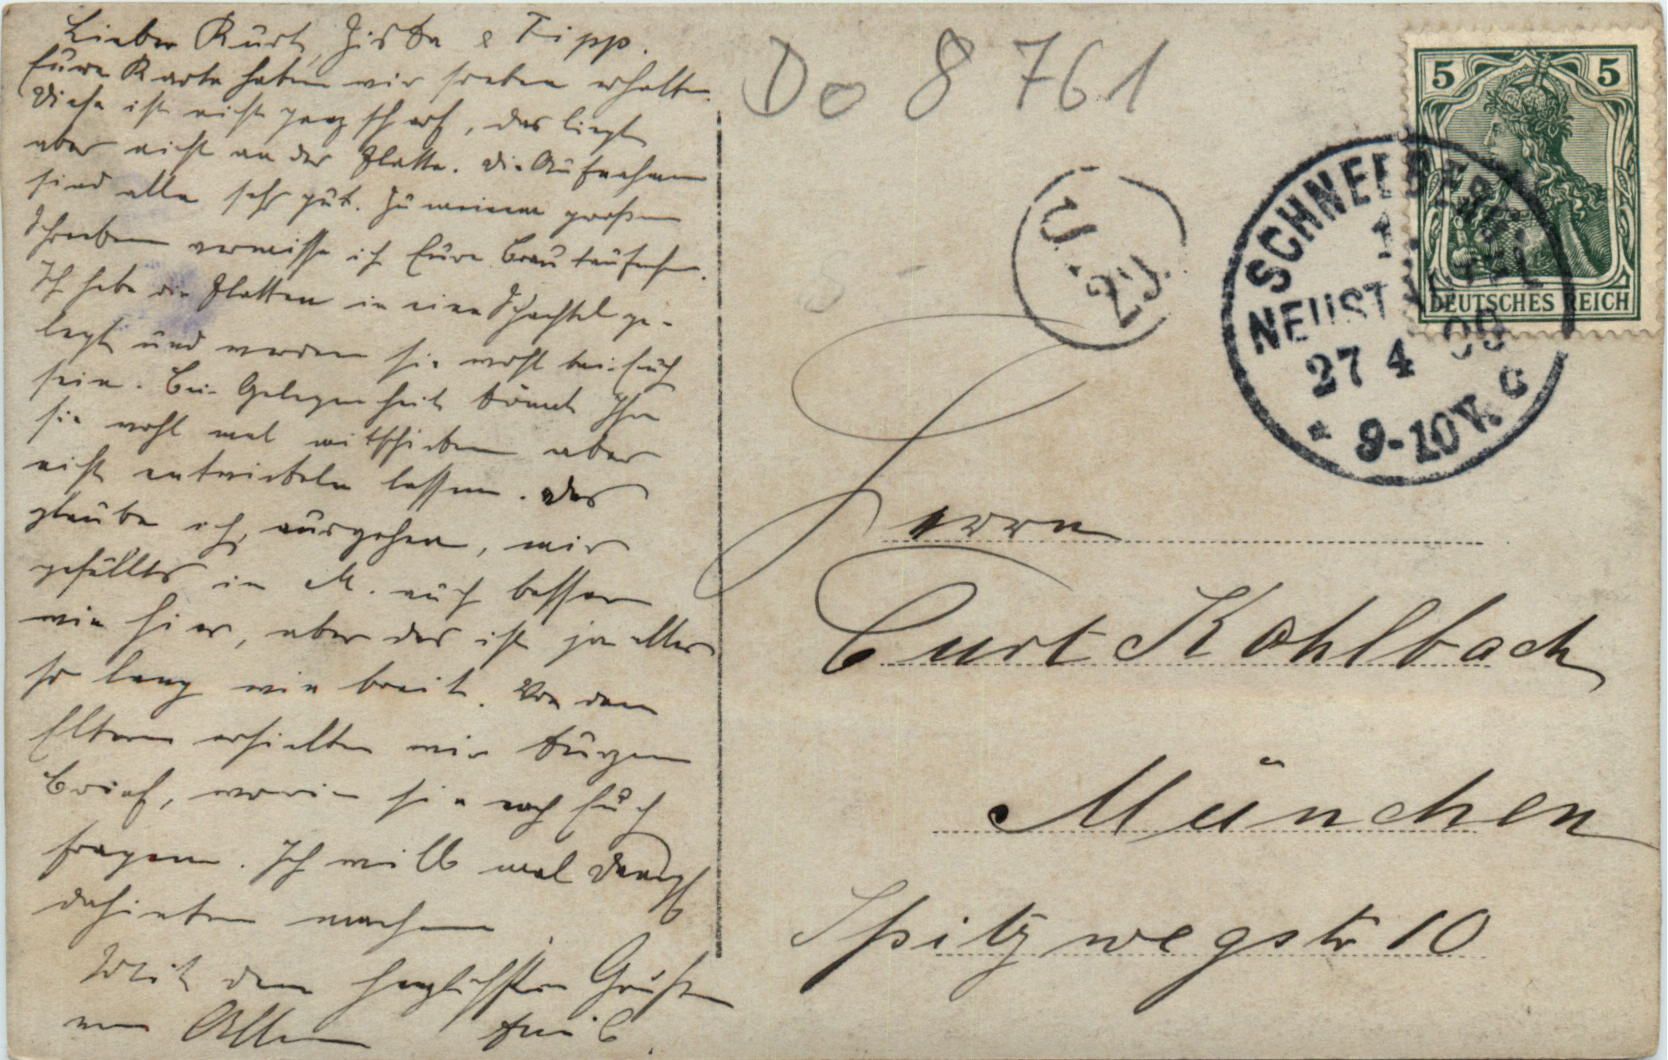 Lieber Kurt, & Tipp.
Eure Karte haben wir soeben erhalten.
Diese ist nicht ganz scharf, das liegt
aber nicht an der Platte. Die Aufnahmen
sind alle sehr gut. Zu meinem großen
Schrecken vermisse ich Eure Brautaufnahme.
Ich habe die Platten in eine Schachtel ge-
legt und werden sie wohl bei Euch
sein. Bei Gelegenheit könnt Ihr
sie wohl mal mitschicken aber
nicht entwickeln lassen. Das
glaube ich, mir
gefällts in M. auch besser
wie hier, aber das ist ja alles
so lang wie breit. Von den
Eltern erhielten wir kurzen
Brief, worin sie nach Euch
fragen. Ich will mal Dampf
dahinter machen.
Mit den herzlichsten Grüßen
von Allen Emil.
Do 8 761
U. 29.
5 5
DEUTSCHES REICH
SCHNEEBERG-
NEUSTÄDTEL
1
27 4 09
* 9-10 V. c
Herrn
Curt Kohlbach
München
Spitzwegstr 10